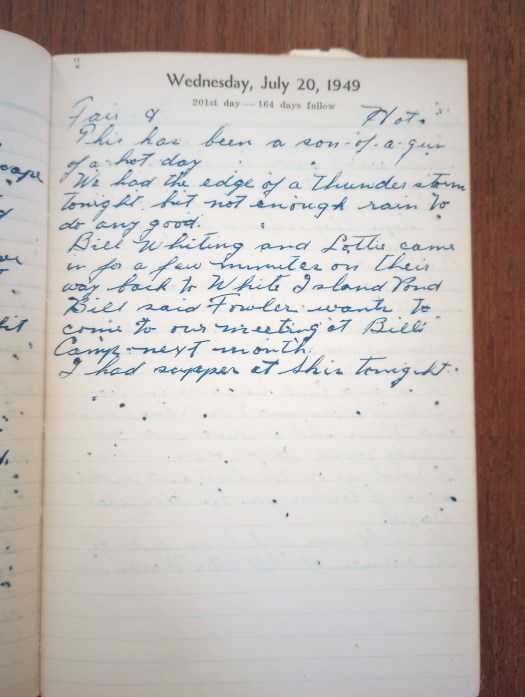 Wednesday, July 20, 1949
201st day — 164 days follow
Fair & Hot.
This has been a son-of-a-gun
of a hot day
We had the edge of a thunder storm
tonight but not enough rain to
do any good.
Bill Whiting and Lottie came
in for a few minutes on their
way back to White Island Pond
Bill said Fowler wants to
come to our meeting at Bills
Camp next month.
I had supper at tonight.